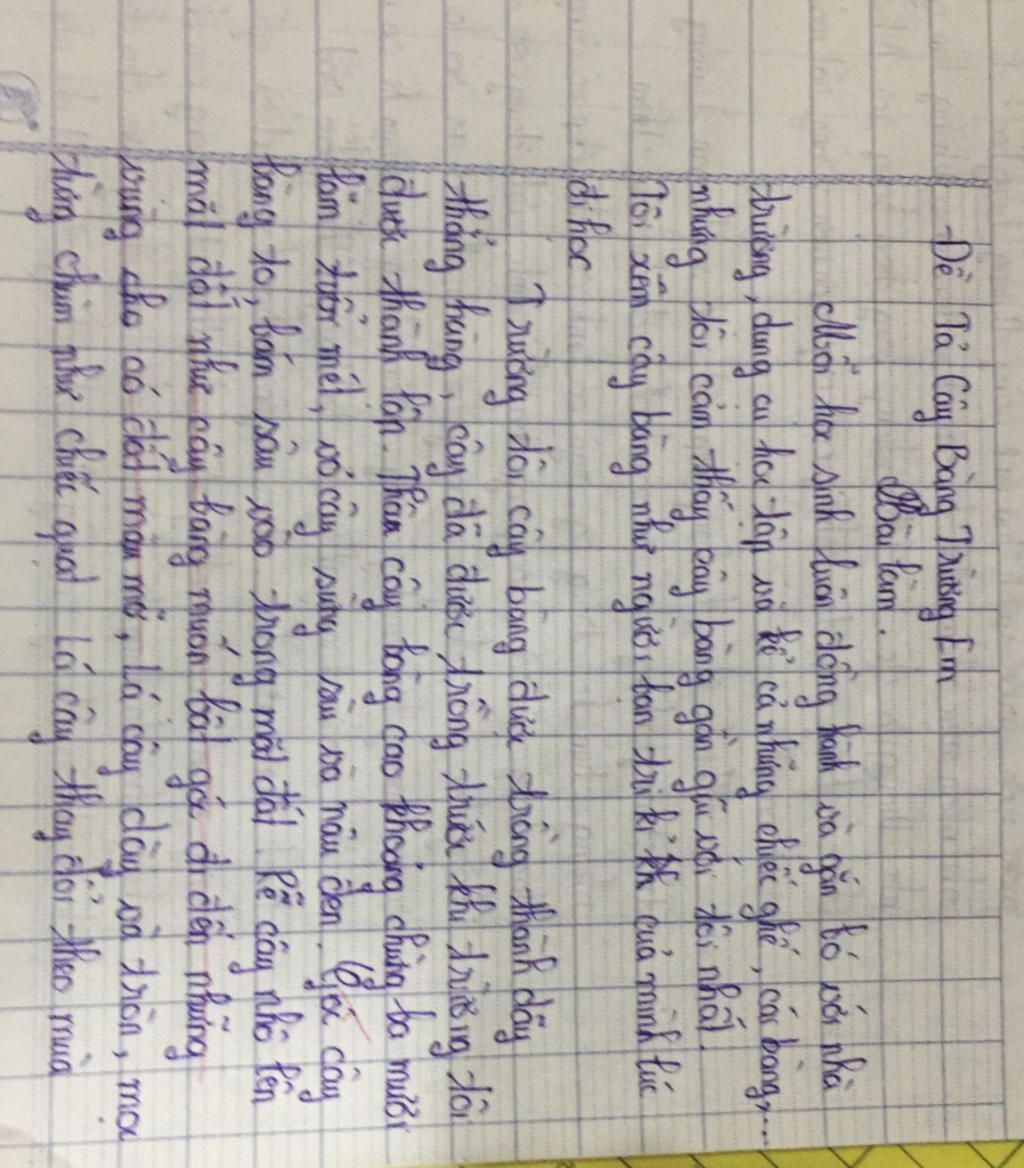 -Đề Tả Cây Bàng Trường Em
Bài làm.
Mỗi học sinh luôn đồng hành và gắn bó với nhà
trường, dụng cụ học tập và kể cả những chiếc ghế, cái bàng,...
nhưng tôi cảm thấy cây bàng gần gũi với tôi nhất.
Tôi xem cây bàng như người bạn tri kỉ của mình lúc
đi học
Trường tôi cây bàng được trồng thành dãy
thẳng hàng, cây đã được trồng trước khi trường tôi
được thành lập. Thân cây bàng cao khoảng chừng ba mươi
lăm tươn mét, vỏ cây sừng sâu và nâu đen. Gốc cây
bàng to, bám sâu vào trong mặt đất. Rễ cây nhô lên
mặt đất như cây bàng muốn bật gốc đi đến những
vùng có đất màu mỡ, Lá cây dày và tròn, mọc
từng chùm như chiếc quạt lá cây thay đổi theo mùa